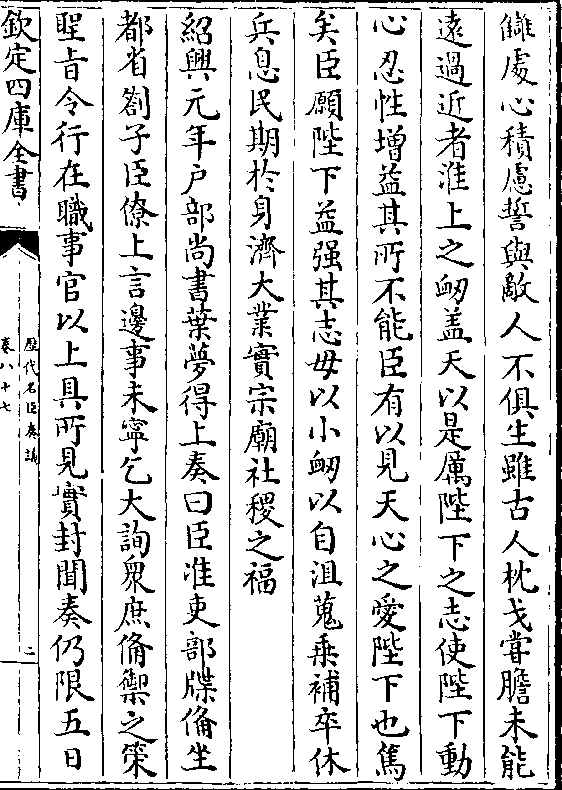 讎處心積慮誓與敵人不俱生雖古人枕戈嘗膽未能
遠過近者淮上之衂盖天以是厲陛下之志使陛下動
心忍性增益其所不能臣有以見天心之愛陛下也篤
矣臣願陛下益强其志毋以小衂以自沮蒐乗補卒休
兵息民期於身濟大業實宗廟社稷之福
紹興元年户部尚書葉夢得上奏曰臣准吏部牒備坐
都省劄子臣僚上言邊事未寧乞大詢衆庶備禦之策
聖旨令行在職事官以上具所見實封聞奏仍限五日
欽定四庫全書
歴代名臣奏議
卷八十七
二